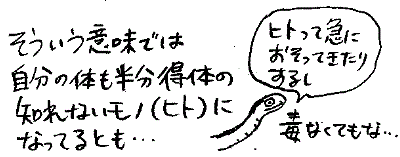 そういう意味では
自分の体も半分得体の
知れないモノ(ヒト)に
なってるとも…
ヒトって急に
おそってきたり
するし
毒なくてもな…